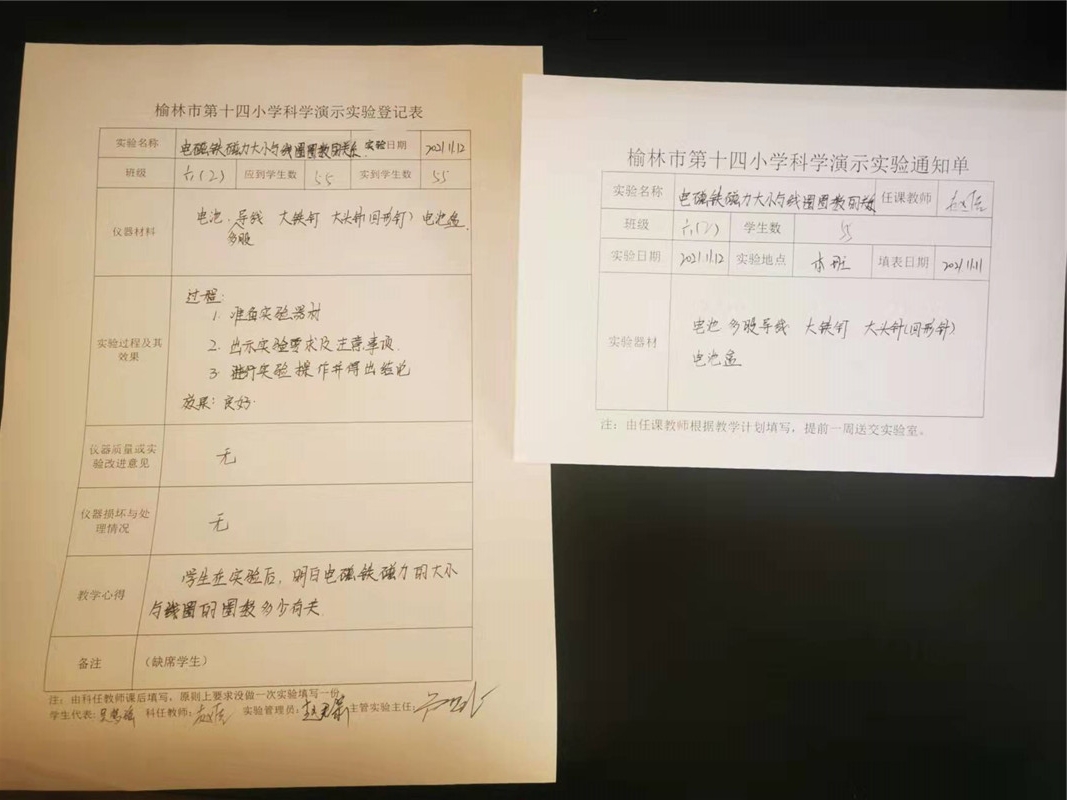 榆林市第十四小学科学演示实验登记表
实验名称 电磁铁磁力大小与线圈圈数的关系 实验日期 2021.11.12
班级 六(2) 应到学生数 55 实到学生数 55
仪器材料 电池、导线 大铁钉 大头针(回形针) 电池盒
多股
实验过程及其效果
过程:
1. 准备实验器材
2. 出示实验要求及注意事项.
3. 进行实验操作并得出结论
效果: 良好.
仪器质量或实验改进意见 无
仪器损坏与处理情况 无
教学心得 学生在实验后,明白电磁铁磁力的大小
与线圈的圈数多少有关
备注 (缺席学生)
注:由科任教师课后填写,原则上要求没做一次实验填写一份
学生代表: 科任教师: 实验管理员: 主管实验主任:
榆林市第十四小学科学演示实验通知单
实验名称 电磁铁磁力大小与线圈圈数的关系 任课教师
班级 六(2) 学生数 55
实验日期 2021.11.12 实验地点 本班 填表日期 2021.11.11
实验器材 电池 多股导线 大铁钉 大头针(回形针)
电池盒
注:由任课教师根据教学计划填写,提前一周送交实验室。